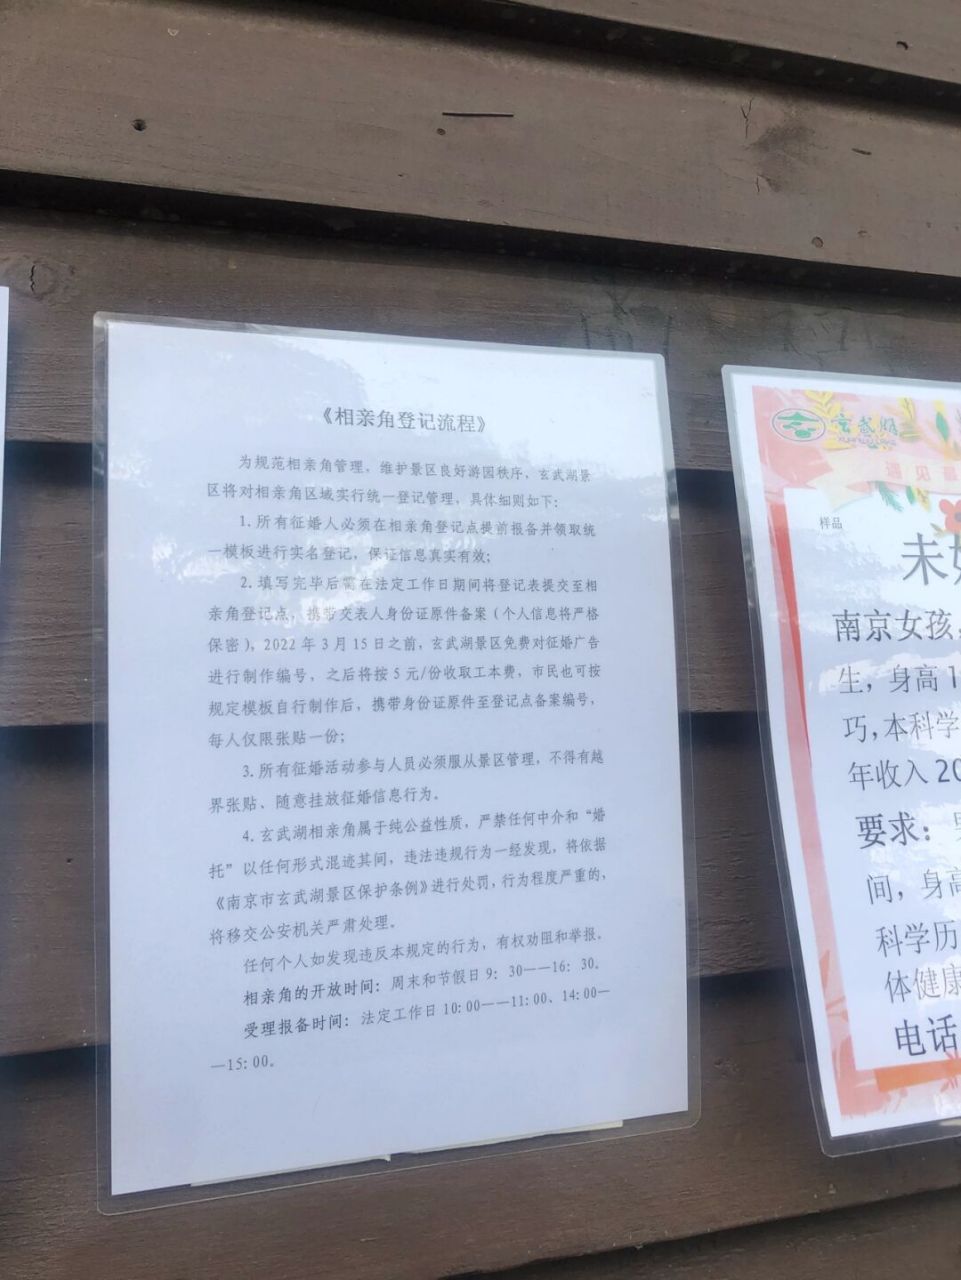 《相亲角登记流程》
为规范相亲角管理，维护景区良好游园秩序，玄武湖景
区将对相亲角区域实行统一登记管理，具体细则如下：
1.所有征婚人必须在相亲角登记点提前报备并领取统
一模板进行实名登记，保证信息真实有效；
2.填写完毕后需在法定工作日期间将登记表提交至相
亲角登记点，携带交表人身份证原件备案（个人信息将严格
保密），2022年3月15日之前，玄武湖景区免费对征婚广告
进行制作编号，之后将按5元/份收取工本费，市民也可按
规定模板自行制作后，携带身份证原件至登记点备案编号，
每人仅限张贴一份；
3.所有征婚活动参与人员必须服从景区管理，不得有越
界张贴、随意挂放征婚信息行为。
4.玄武湖相亲角属于纯公益性质，严禁任何中介和“婚
托”以任何形式混迹其间，违法违规行为一经发现，将依据
《南京市玄武湖景区保护条例》进行处罚，行为程度严重的，
将移交公安机关严肃处理。
任何个人如发现违反本规定的行为，有权劝阻和举报。
相亲角的开放时间：周末和节假日9：30——16：30。
受理报备时间：法定工作日10:00——11:00、14:00—
—15:00。
玄武湖
XUANWU LAKE
遇见最
样品
未
南京女孩，
生，身高1
巧，本科学
年收入20
要求：
间，身高
科学历
体健康
电话